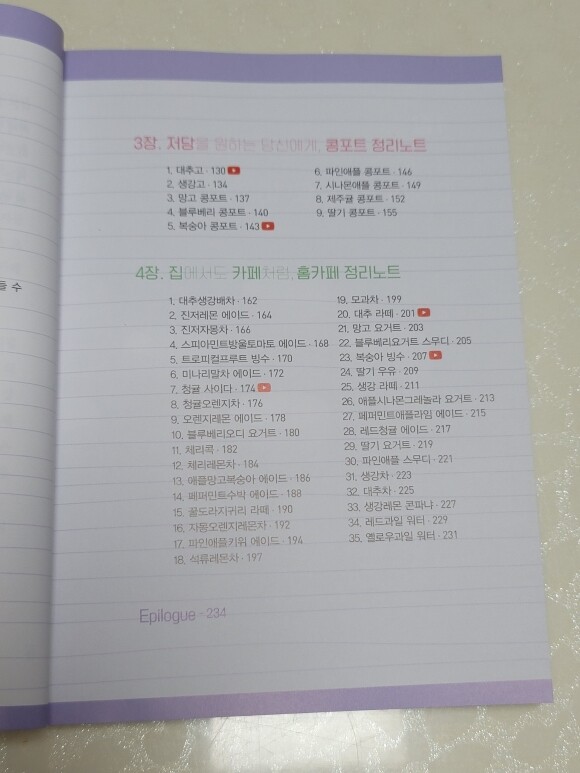 3장. 저당을 원하는 당신에게, 콩포트 정리노트
1. 대추고 · 130
2. 생강고 · 134
3. 망고 콩포트 · 137
4. 블루베리 콩포트 · 140
5. 복숭아 콩포트 · 143
6. 파인애플 콩포트 · 146
7. 시나몬애플 콩포트 · 149
8. 제주귤 콩포트 · 152
9. 딸기 콩포트 · 155
4장. 집에서도 카페처럼, 홈카페 정리노트
1. 대추생강배차 · 162
2. 진저레몬 에이드 · 164
3. 진저자몽차 · 166
4. 스피아민트방울토마토 에이드 · 168
5. 트로피컬프루트 빙수 · 170
6. 미나리말차 · 172
7. 청귤 사이다 · 174
8. 청귤오렌지차 · 176
9. 오렌지레몬 에이드 · 178
10. 블루베리오디 요거트 · 180
11. 체리콕 · 182
12. 체리레몬차 · 184
13. 애플망고복숭아 에이드 · 186
14. 페퍼민트수박 에이드 · 188
15. 꿀도라지귀리 라떼 · 190
16. 자몽오렌지레몬차 · 192
17. 파인애플키위 에이드 · 194
18. 석류레몬차 · 197
19. 모과차 · 199
20. 대추 라떼 · 201
21. 망고 요거트 · 203
22. 블루베리요거트 스무디 · 205
23. 복숭아 빙수 · 207
24. 딸기 우유 · 209
25. 생강 라떼 · 211
26. 애플시나몬그레놀라 요거트 · 213
27. 페퍼민트애플라임 에이드 · 215
28. 레드청귤 에이드 · 217
29. 딸기 요거트 · 219
30. 파인애플 스무디 · 221
31. 생강차 · 223
32. 대추차 · 225
33. 생강레몬 콘파냐 · 227
34. 레드과일 워터 · 229
35. 옐로우과일 워터 · 231
Epilogue · 234
들 수